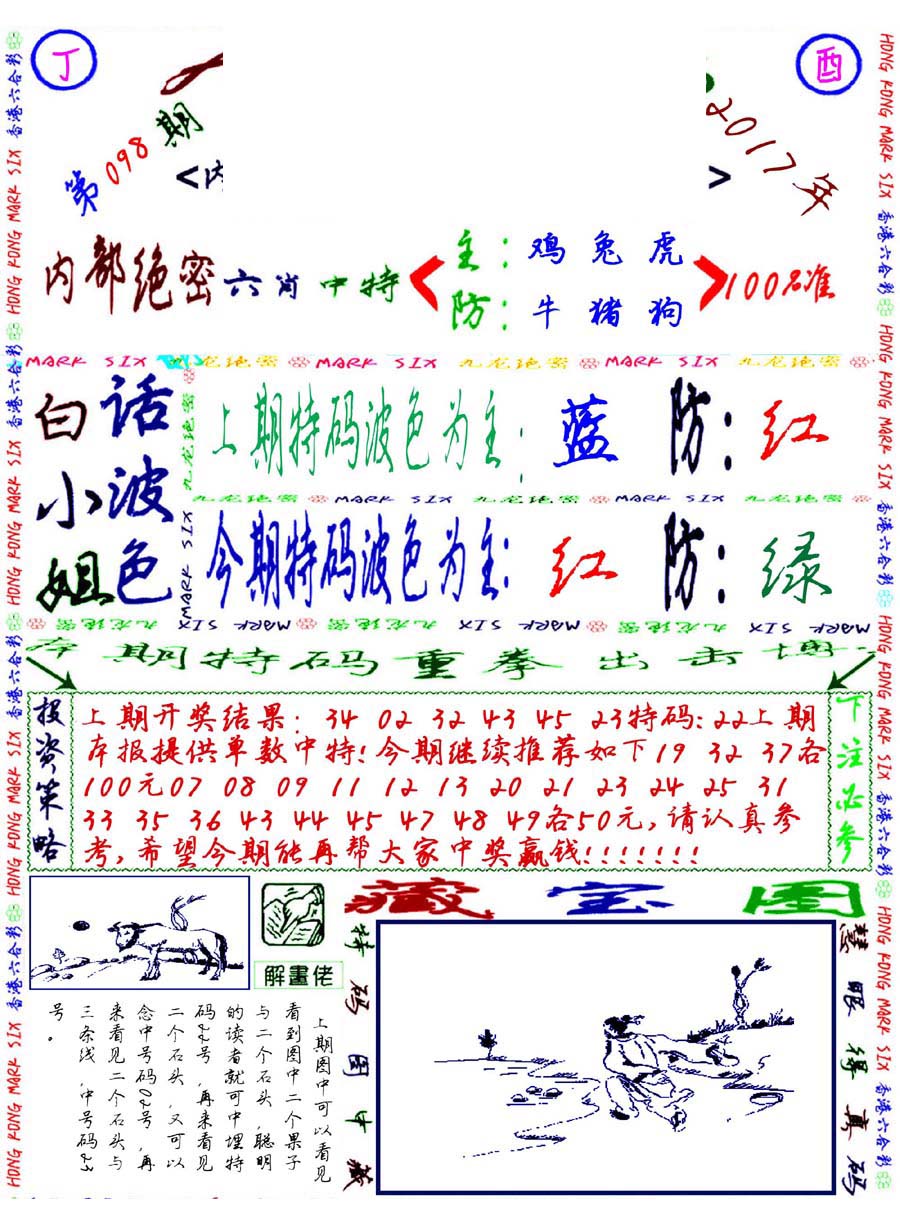 丁
酉
第098期
2017年
<内
>
内部绝密六肖中特
主:鸡兔虎
防:牛猪狗
100%准
MARK SIX 九龙绝密 MARK SIX 九龙绝密 MARK SIX 九龙绝密
白话
小波
姐色
上期特码波色为主:蓝 防:红
九龙绝密 MARK SIX 九龙绝密 MARK SIX 九龙绝密
今期特码波色为主:红 防:绿
九龙绝密 MARK SIX
九龙绝密 MARK SIX 九龙绝密 MARK SIX 九龙绝密 MARK SIX
本期特码重拳出击博
投资策略
上期开奖结果:34 02 32 43 45 23特码:22上期
本报提供单数中特!今期继续推荐如下19 32 37各
100元07 08 09 11 12 13 20 21 23 24 25 31
33 35 36 43 44 45 47 48 49各50元,请认真参
考,希望今期能再帮大家中奖赢钱!!!!!!!
下注必参
藏宝图
解畫佬
上期图中可以看见
看到图中二个果子
与二个石头,聪明
的读者就可中埋特
码22号,再来看见
二个石头,又可以
念中号码02号,再
来看见二个石头与
三条线,中号码23
号。
特码图中藏
慧眼得真码
HONG KONG MARK SIX 香港六合彩
HONG KONG MARK SIX 香港六合彩